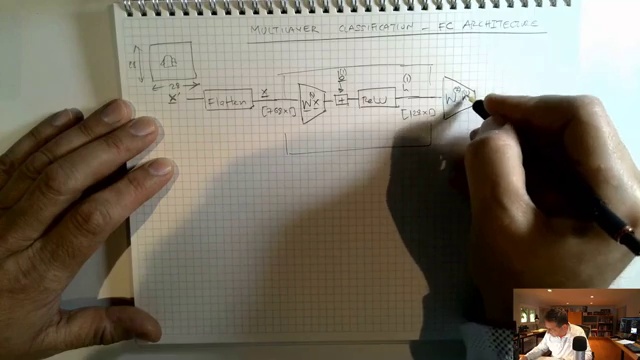 MULTILAYER CLASSIFICATION - FC ARCHITECTURE
28
28
x'
Flatten
x
[768x1]
W⁽¹⁾x
b⁽¹⁾
+
ReLU
h⁽¹⁾
[128x1]
W⁽²⁾